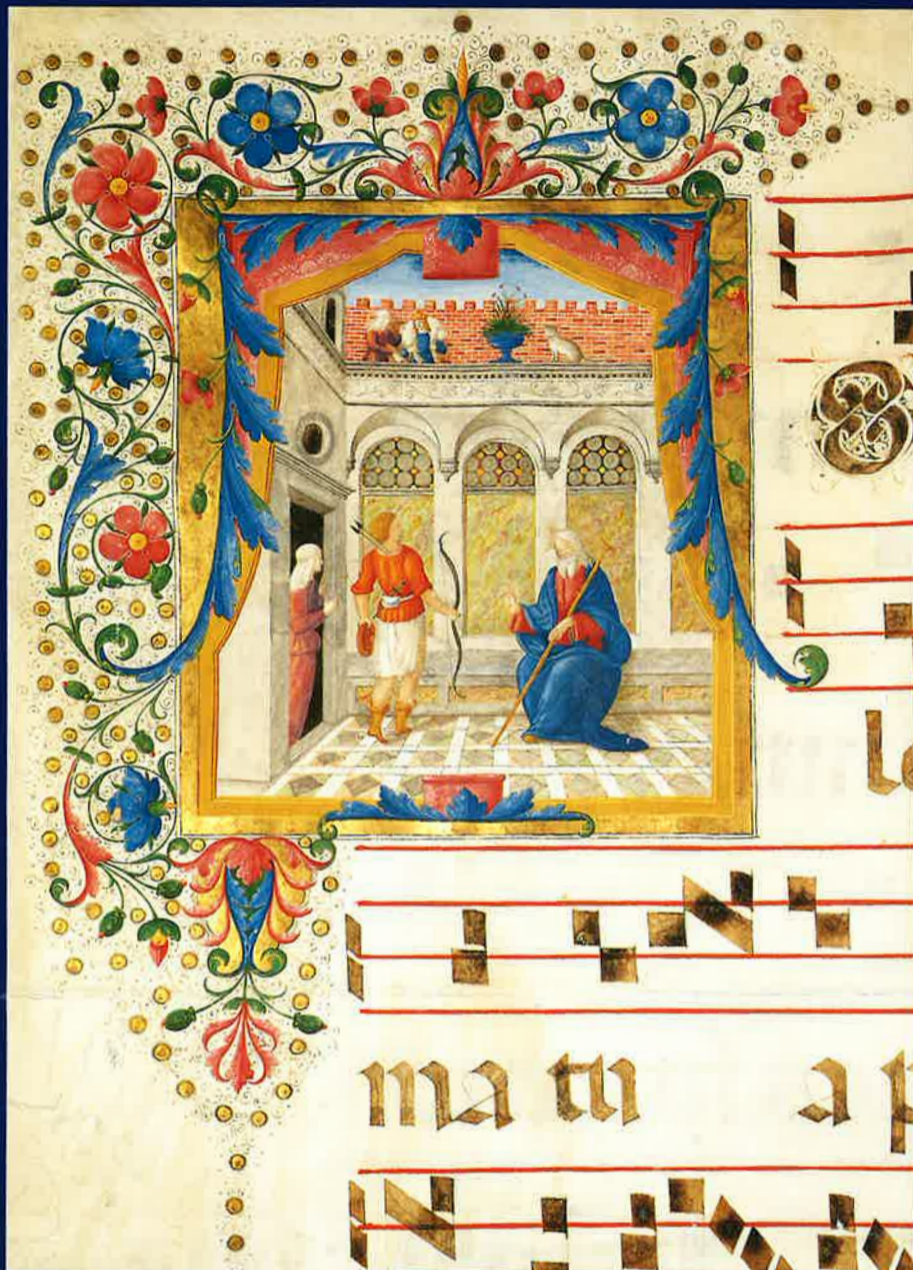 le
ma tu a p